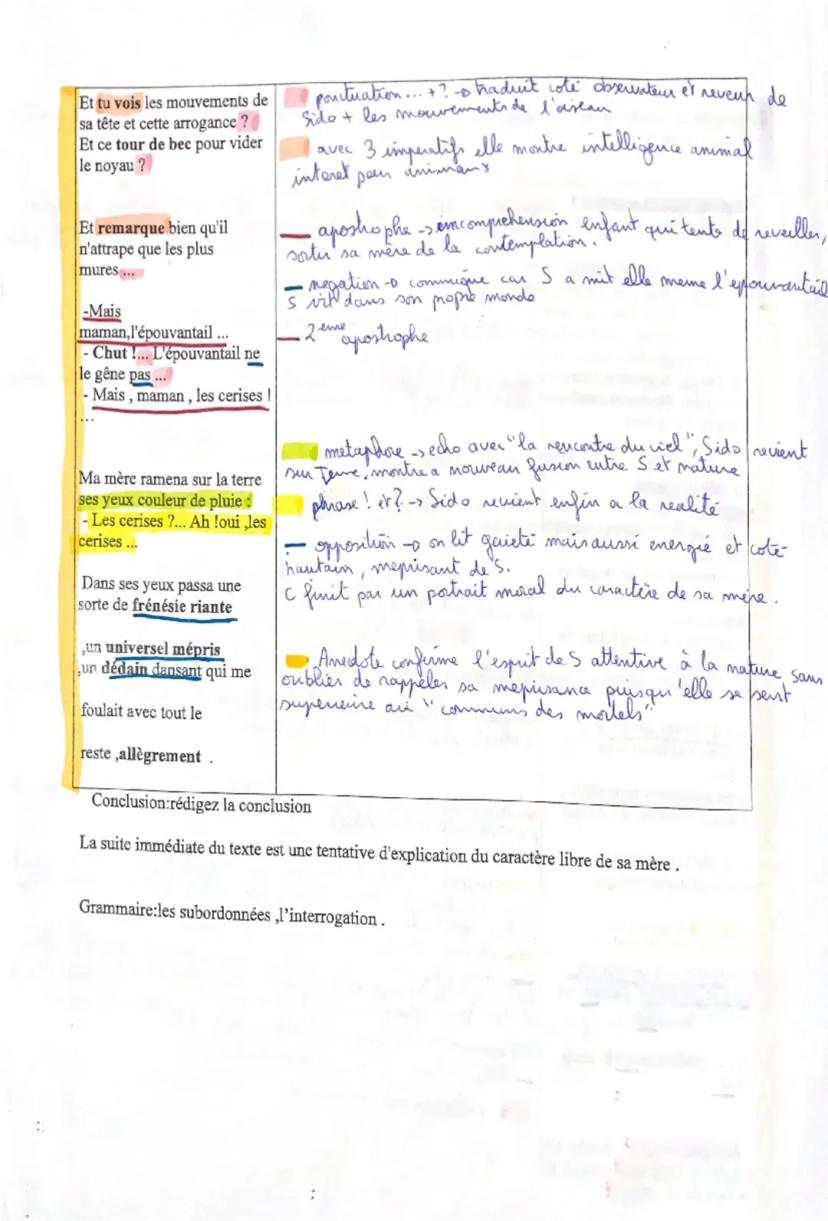 Et tu vois les mouvements de
sa tête et cette arrogance ?
Et ce tour de bec pour vider
le noyau ?
Et remarque bien qu'il
n'attrape que les plus
mures ...
-Mais
maman,l'épouvantail ...
- Chut !... L'épouvantail ne
le gêne pas ...
- Mais , maman , les cerises !
...
Ma mère ramena sur la terre
ses yeux couleur de pluie :
- Les cerises ?... Ah !oui ,les
cerises ...
Dans ses yeux passa une
sorte de frénésie riante
,un universel mépris
,un dédain dansant qui me
foulait avec tout le
reste ,allègrement .
ponctuation ... + ? → traduit coté observateur et reveur de
Sido + les mouvements de l'oiseau
avec 3 imperatifs elle montre intelligence animal
interet pour animaux
apostrophe → incomprehension enfant qui tente de reveiller,
sortir sa mère de la contemplation.
negation → communique car S a mit elle meme l'epouvantail
S vit dans son propre monde
2eme apostrophe
metaphore → echo avec "la rencontre du ciel", Sido revient
sur Terre, montre a nouveau fusion entre S et nature
phrase ! et ? → Sido revient enfin a la realité
opposition → on lit gaieté mais aussi energie et coté
hautain, meprisant de S.
C finit par un portrait moral du caractère de sa mère.
Anecdote confirme l'esprit de S attentive à la nature sans
oublier de rappeler sa puisqu'elle se sent
superieure "communs des mortels"
Conclusion:rédigez la conclusion
La suite immédiate du texte est une tentative d'explication du caractère libre de sa mère .
Grammaire:les subordonnées ,l'interrogation .